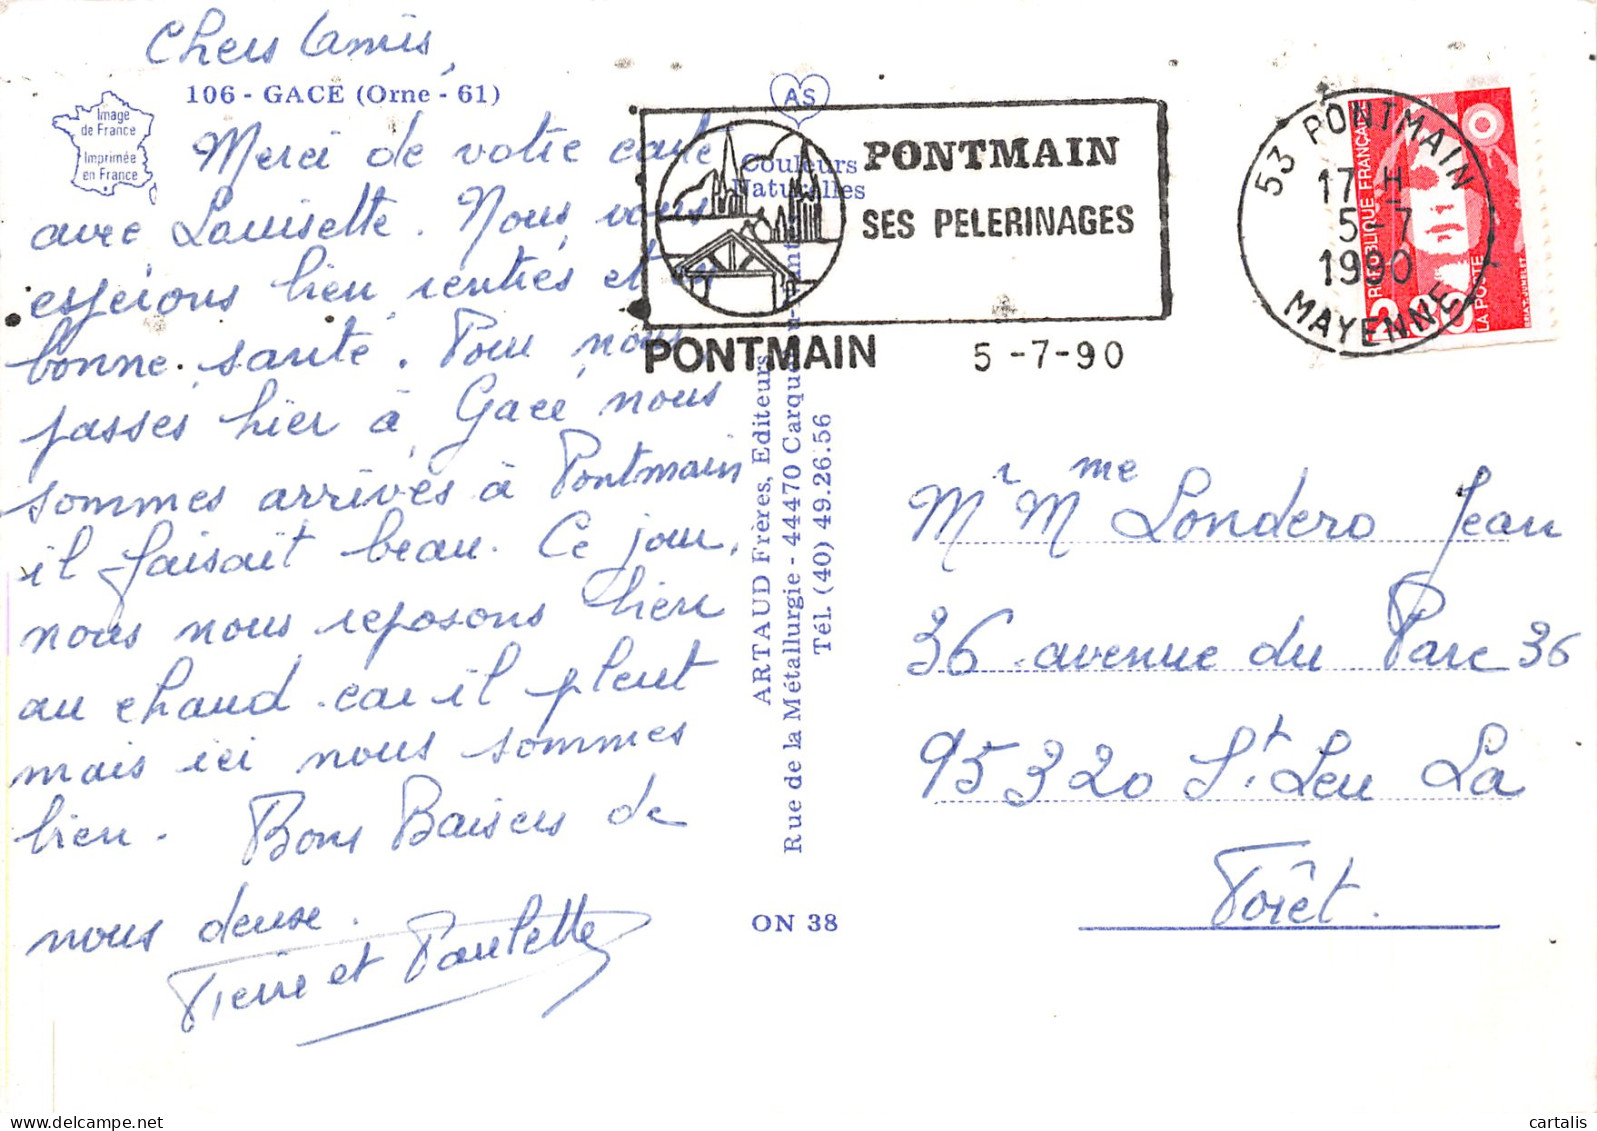 Chers Amis,
106 - GACE (Orne - 61)
Image
de France
Imprimée
en France
Merci de votre carte
avec Louisette. Nous vous
espérons bien rentrés et en
bonne santé. Pour nous
passés hier à Gacé nous
sommes arrivés à Pontmain
il faisait beau. Ce jour,
nous nous reposons bien
au chaud car il pleut
mais ici nous sommes
bien. Bons Baisers de
nous deux.
Pierre et Paulette
AS
Couleurs
Naturelles
ARTAUD Frères, Editeurs
Rue de la Métallurgie - 44470 Carquefou
Tél. (40) 49.26.56
ON 38
PONTMAIN
SES PELERINAGES
PONTMAIN 5 -7-90
53 PONTMAIN
17 H
5-7
1990
MAYENNE
REPUBLIQUE FRANÇAISE
LA POSTE
Mr Mme Londero Jean
36 avenue du Parc 36
95320 St. Leu La
Forêt.
cartalis